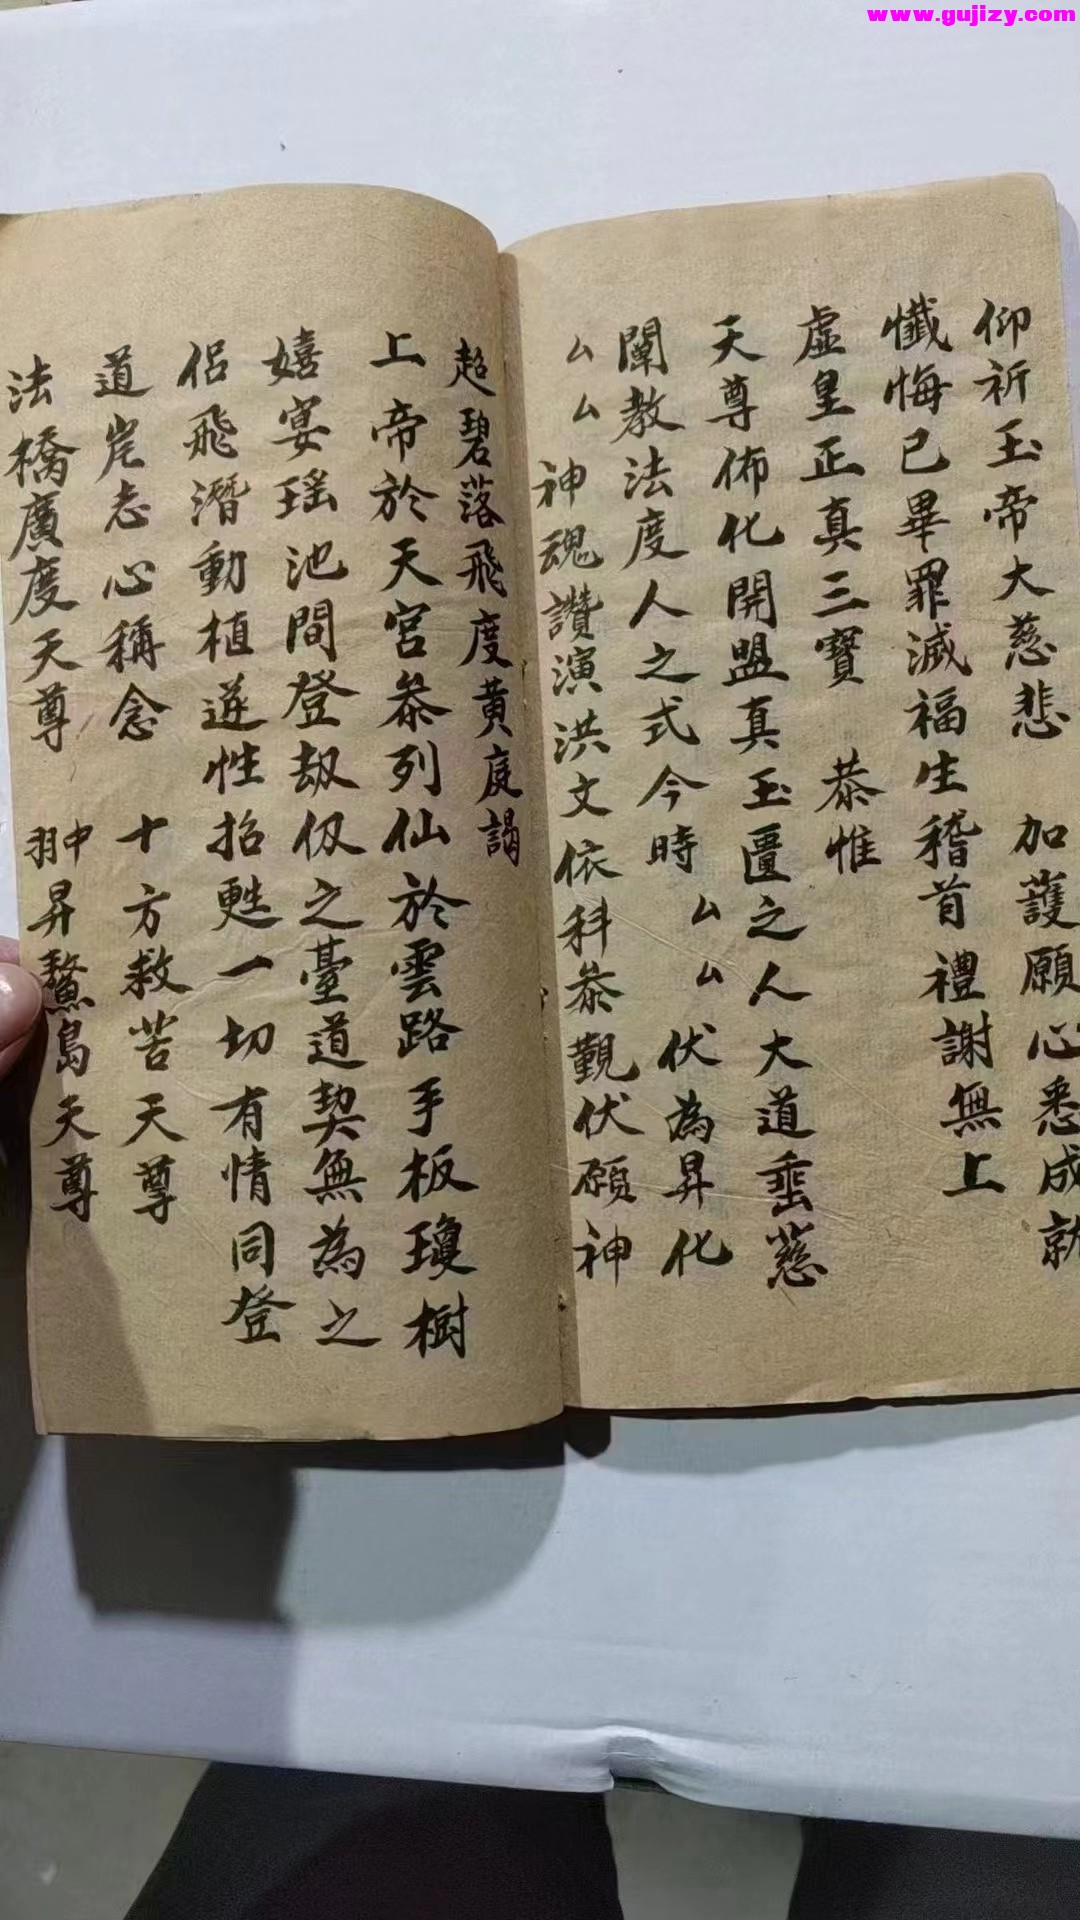 www.gujizy.com
仰祈玉帝大慈悲 加護願心悉成就
懺悔已畢罪滅福生稽首禮謝無上
虛皇正真三寶 恭惟
天尊佈化開盟真玉匱之人大道垂慈
闡教法度人之式今時厶厶伏為昇化
厶厶神魂讚演洪文依科叅觀伏願神
超碧落飛度黃庭謁
上帝於天宮叅列仙於雲路手板瓊樹
嬉宴瑤池間登劫仞之臺道契無為之
侶飛潛動植遂性招甦一切有情同登
道岸志心稱念 十方救苦天尊
法橋廣度天尊 翀昇鰲島天尊